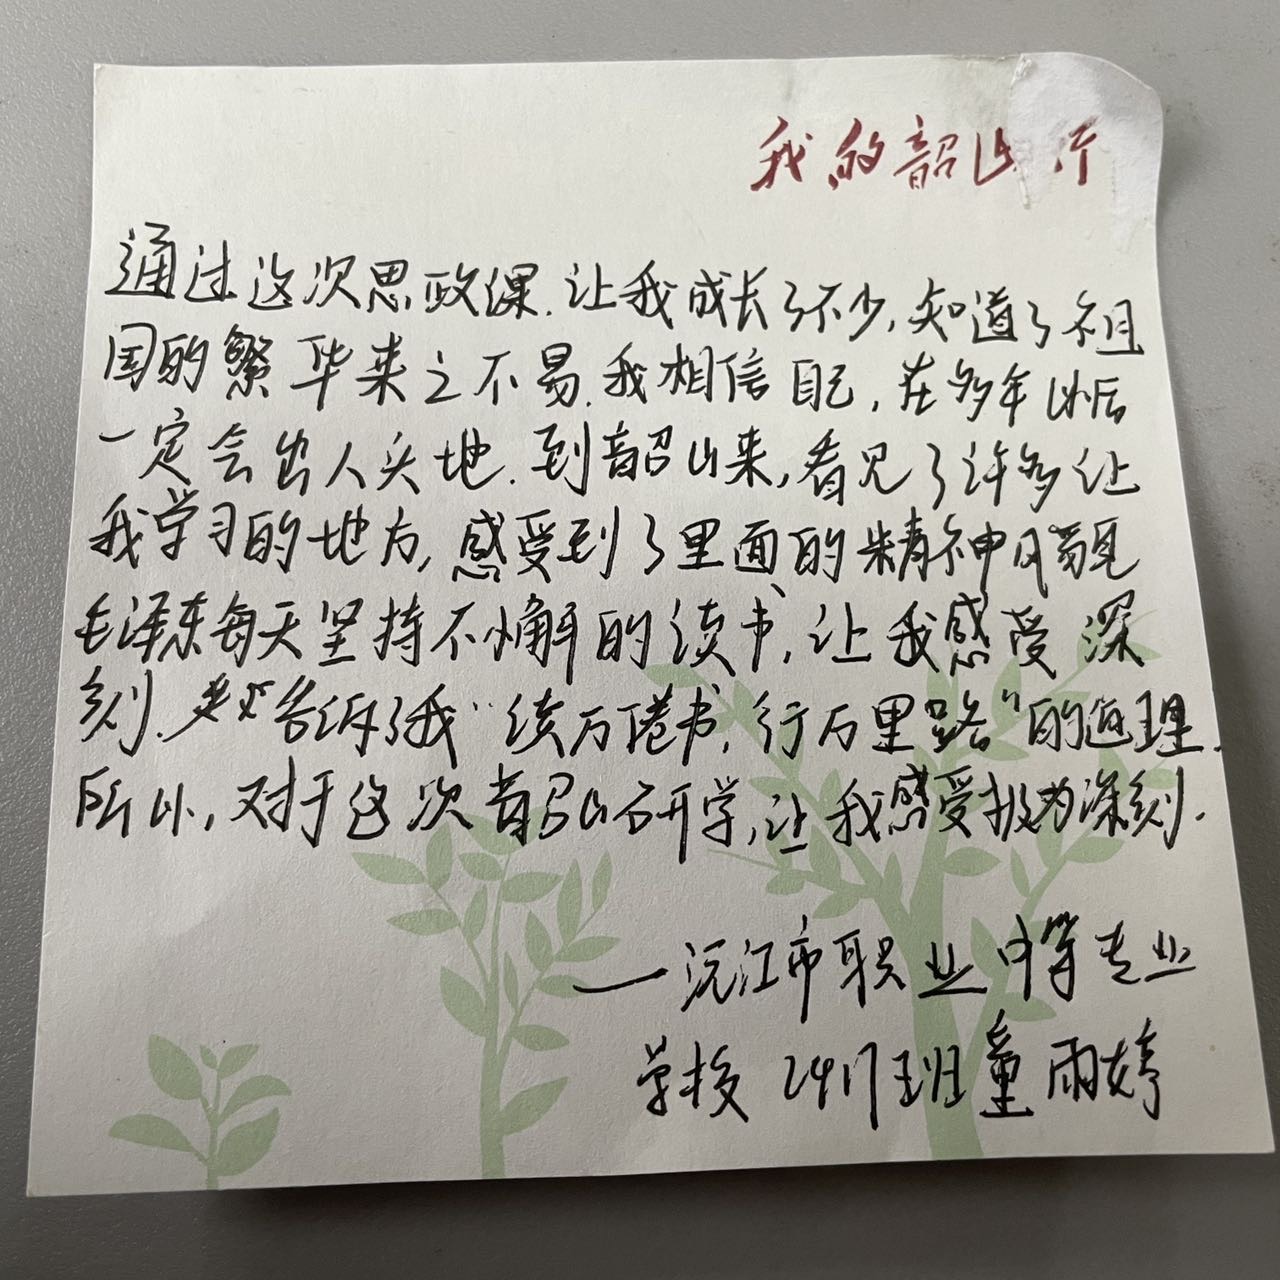 我的韶山行
通过这次思政课.让我成长了不少,知道了祖
国的繁华来之不易.我相信自己,在多年以后
一定会出人头地.到韶山来,看见了许多让
我学习的地方,感受到了里面的精神风貌
毛泽东每天坚持不懈的读书,让我感受深
刻.告诉了我“读万卷书,行万里路”的道理.
所以,对于这次韶山研学,让我感受极为深刻.
一沅江市职业中等专业
学校 2417班童雨婷